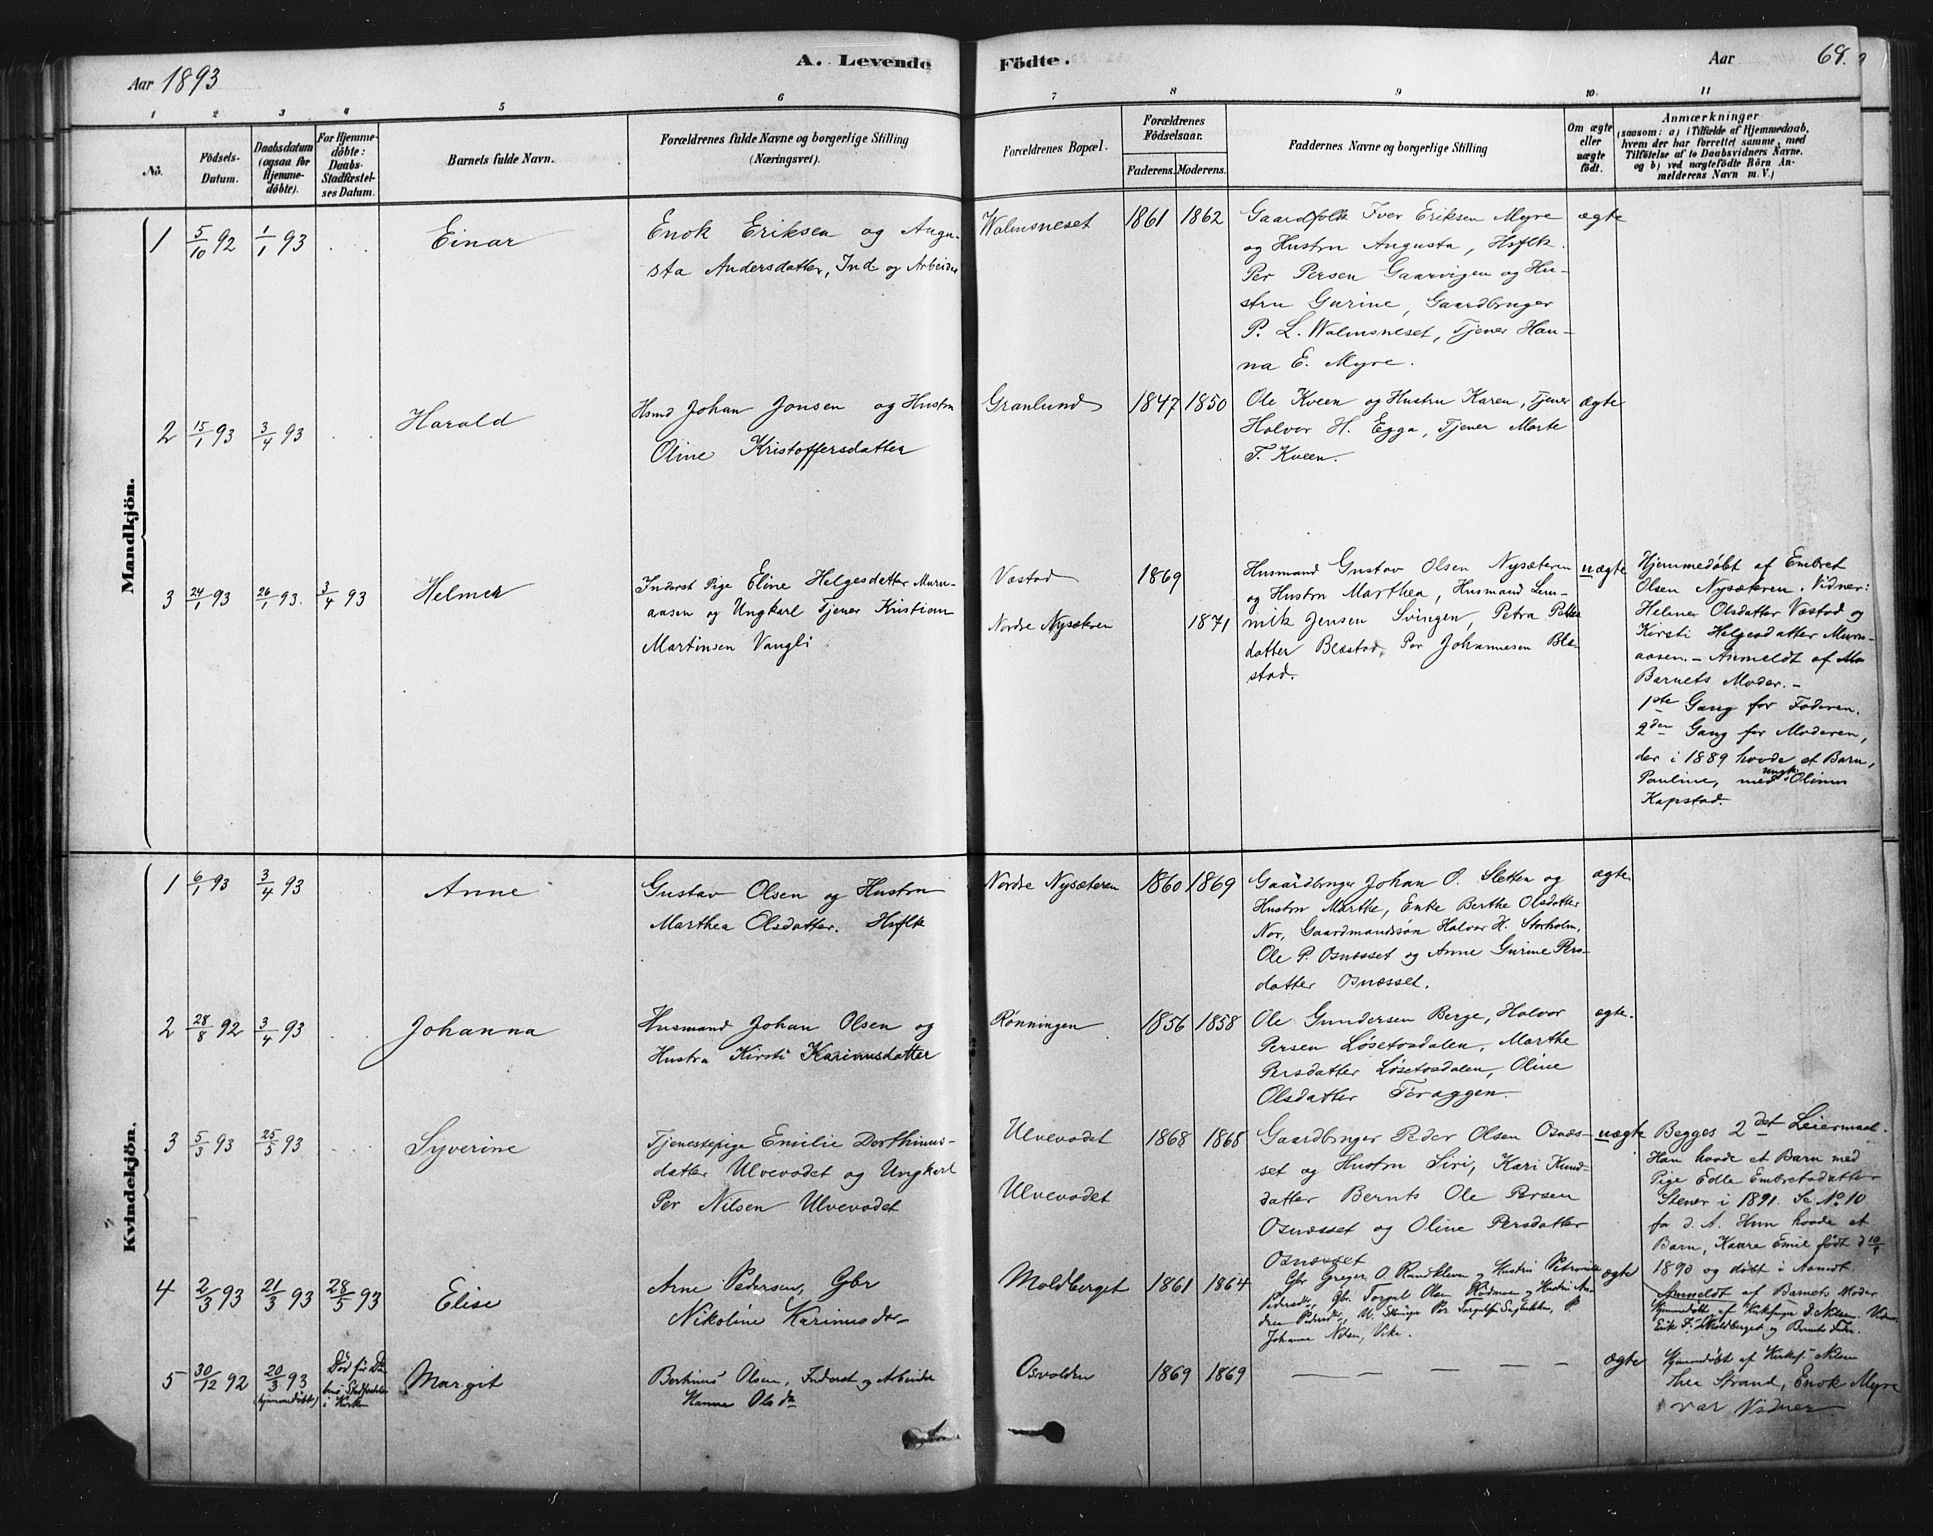 Aar 1893
A. Levende Födte.
Aar
69.
1 2 3 4 5 6 7 8 9 10. 11
No.
Födsels-Datum.
Daabsdatum (ogsaa for Hjemme-döbte).
For Hjemme-döbte: Daabs-Stadfæstel-ses Datum.
Barnets fulde Navn.
Forældrenes fulde Navne og borgerlige Stilling (Næringsvei).
Forældrenes Bopæl.
Forældrenes Födselsaar.
Faderens. Moderens.
Faddernes Navne og borgerlige Stilling
Om ægte eller uægte födt.
Anmærkninger
(saasom: a) i Tilfælde af Hjemmedaab,
hvem der har forrettet samme, med
Tilföielse af to Daabsvidners Navne.
og b) ved uægtefödte Börn An-
melderens Navn m. V.)
Mandkjön.
1 5/10 92 1/1 93 . . Einar
Enok Eriksen og Augu-
sta Andersdatter, Ind. og Arbeider
Walmsneset 1861 1862
Gaardfolk Iver Eriksen Myre
og Hustru Augusta, Hsflk.
Per Persen Gaarvigen og Hu-
stru Gurine, Gaardbruger
P. L. Walmsneset, Tjener Han-
na E. Myre.
ægte
2 15/1 93 3/4 93 . . Harald
Hsmd Johan Jonsen og Hustru
Oline Kristoffersdatter
Granlund 1847 1850
Ole Kveen og Hustru Karen, Tjener
Halvor H. Egga, Tjener Marte
T. Kveen.
ægte
3 24/1 93 26/1 93. 3/4 93 Helmer
Inderst Pige Eline Helgesdatter Murn-
aasen og Ungkarl Tjener Kristian
Martinsen Vangli
Væstad 1869
Nordre Nysætren 1871
Husmand Gustav Olsen Nysæteren
og Hustru Marthea, Husmand
Jensen Svingen, Petra
datter Blæstad, Per Johannesen Blæ-
stad.
uægte
Hjemmedøbt af Embret
Olsen Nysætren. Vidner:
Helene Olsdatter Væstad og
Kirsti Helgesdatter Murn-
aasen. - Anmeldt af
Barnets Moder. -
1ste Gang for Faderen.
2den Gang for Moderen,
der i 1889 havde et Barn,
Pauline, med Ungk. Olinus
Kapstad.
Kvindekjön.
1 6/1 93 3/4 93 Anne
Gustav Olsen og Hustru
Marthea Olsdatter. Hsflk
Nordre Nysæteren 1860 1869
Gaardbruger Johan O. Sletten og
Hustru Marthe, Enke Berthe Olsdatter
Nor, Gaardmandssøn Halvor H. Storholm,
Ole P. Osnæsset og Anne Gurine Pers-
datter Osnæsset.
ægte
2 28/8 92 3/4 93 . . Johanna
Husmand Johan Olsen og
Hustru Kirsti Karinusdatter
Rønningen 1856 1858
Ole Gundersen Berge, Halvor
Persen Løsetosdalen, Marthe
Persdatter Løsetosdalen, Oline
Olsdatter Foraggen.
ægte.
3 5/3 93 25/5 93 . . Syverine
Tjenestepige Emilie Dorthinus-
datter Ulvevadet og Ungkarl
Per Nilsen Ulvevadet
Ulvevadet 1868 1868
Ulvevadet
Gaardbruger Peder Olsen Osnæs-
set og Hustru Siri, Kari Knud-
datter Bernts Ole Persen
Osnæsset og Oline Persdatter
Osnæsset
uægte
Begges 2det Leiermaal.
Han havde et Barn med
Pige Edle Embretsdatter
Stener i 1891. Se No 10
for d. A. Hun havde et
Barn, Kaare Emil født d 10/9
1890 og døbt i Aamot.
Anmeldt af Barnets Moder
4 2/3 93 21/3 93 28/5 93 Elise
Arne Pedersen, Gbr
Nikoline Karinusdr
Moldberget 1861 1864
Gbr Greger O. Rundkleven og Hustru Petronille
Pedersdtr, Gbr. Torgal Olsen Rødmoen og Hustru An-
drea Pedersdtr,
Johanne Nilsen, Vike.
ægte
Hjemmedøbt af Kirkesanger J. Nilsen. Vidner
Erik Moldberget og Bernts
5 30/12 92 20/3 93 (hjemmedøbt)
Død før Da-
bens Stadfæstelse
i Kirken
Margit
Berthinus Olsen, Inderst og Arbeider
Hanna Olsdtr
Osvolden 1869 1869
— — — — —
ægte
Hjemmedøbt af Kirkes. Nilsen
Thea Strand, Enok Myre
var Vidner